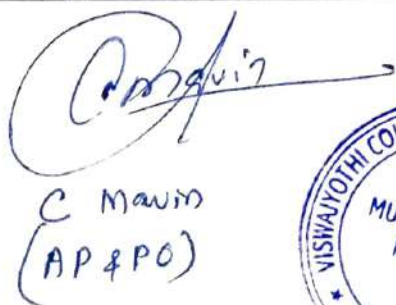 C Mavin
(AP & PO)
VISWAJYOTHI CO
MU